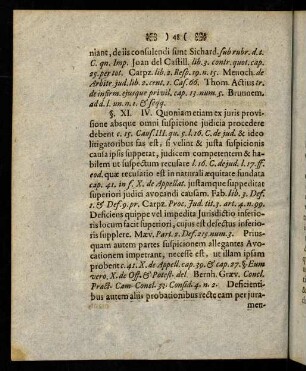 ) 48 (
niant, de iis consulendi sunt Sichard. sub rubr. d. t.
C. qn. Imp. Joan del Castill. lib. 3. contr. quot. cap.
25. per tot. Carpz. lib. 2. Resp. 19. n. 15. Menoch. de
Arbitr. jud. lib. 2. cent. 1. Cas. 66. Thom. Actius tr.
de infirm. ejusque privil. cap. 13. num. 5. Brunnem.
ad d. l. un. n. 1. & seqq.
§. XI. IV. Quoniam etiam ex juris provi-
sione absque omni suspicione judicia procedere
debent c. 15. Caus. III. qu. 5. l. 16. C. de jud. & ideo
litigatoribus fas est, si velint & justa suspicionis
causa ipsis suppetat, judicem competentem & ha-
bilem ut suspectum recusare l. 16. C. de jud. l. 17. ff.
eod. quæ recusatio est in naturali æquitate fundata
cap. 41. in f. X. de Appellat. justamque suppeditat
superiori judici avocandi causam. Fab. lib. 3. Def.
1. & Def. 9. pr. Carpz. Proc. Jud. tit. 3. art. 4. n. 99.
Deficiens quippe vel impedita Jurisdictio inferio-
ris locum facit superiori, cujus est defectus inferio-
ris supplere. Mæv. Part. 2. Def. 215. num. 5. Prius-
quam autem partes suspicionem allegantes Avo-
cationem impetrant, necesse est, ut illam ipsam
probent c. 41. X. de Appell. cap. 39. & cap. 27. §. Eum
vero. X. de Off. & Potest. del. Bernh. Græv. Concl.
Pract. Cam. Concl. 53. Consid. 4. n. 2. Deficienti-
bus autem aliis probationibus recte eam per jura-
men-